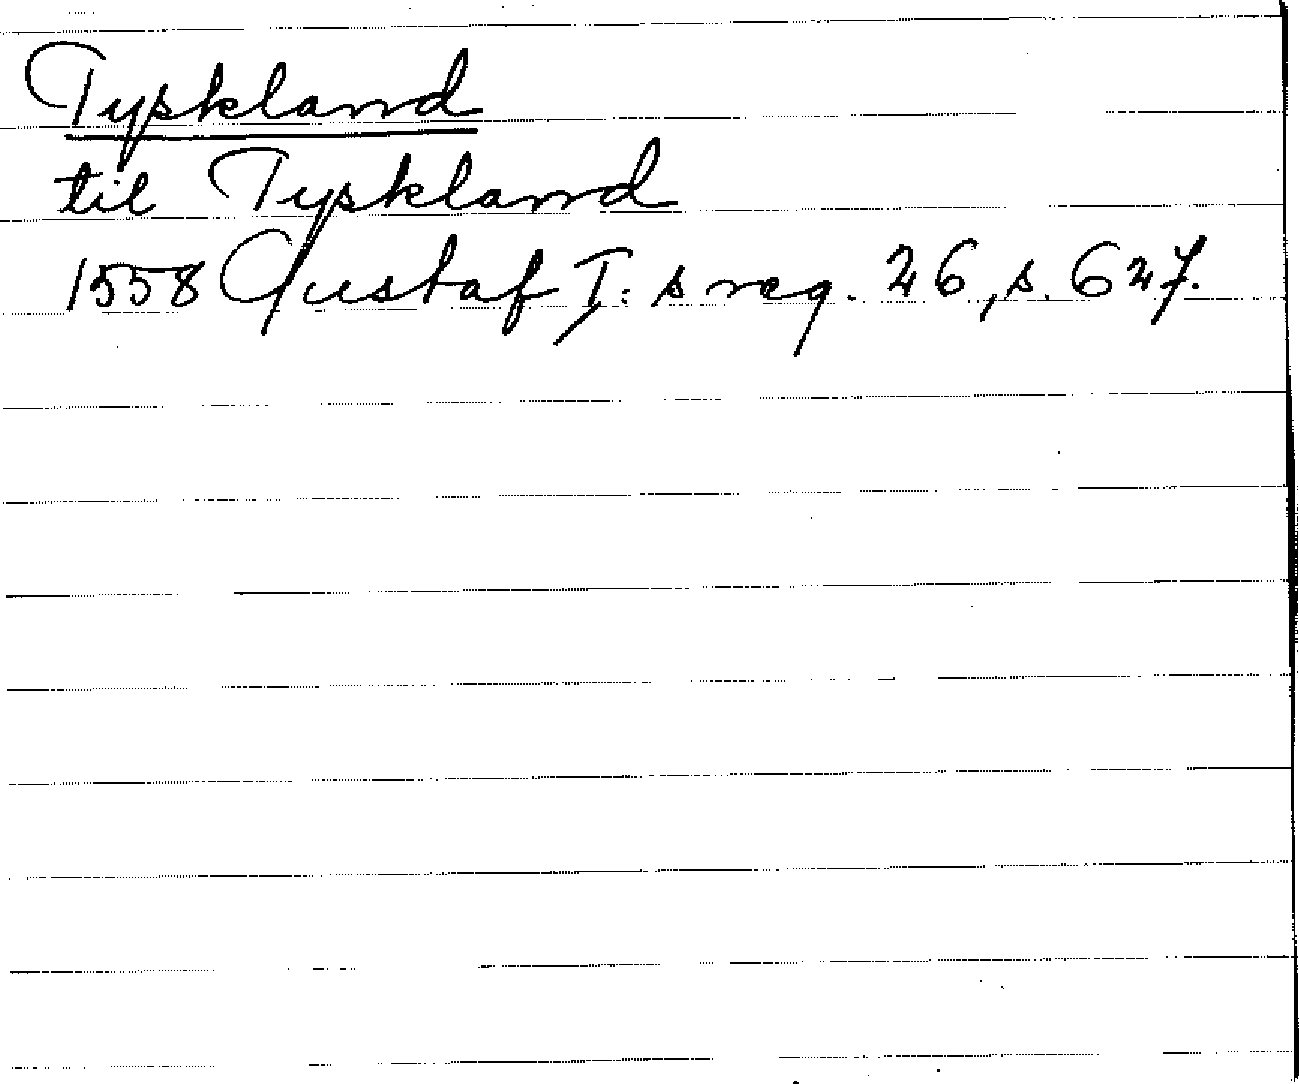 Tyskland
til Tyskland
1558 Gustaf I: s reg. 26, s. 627.